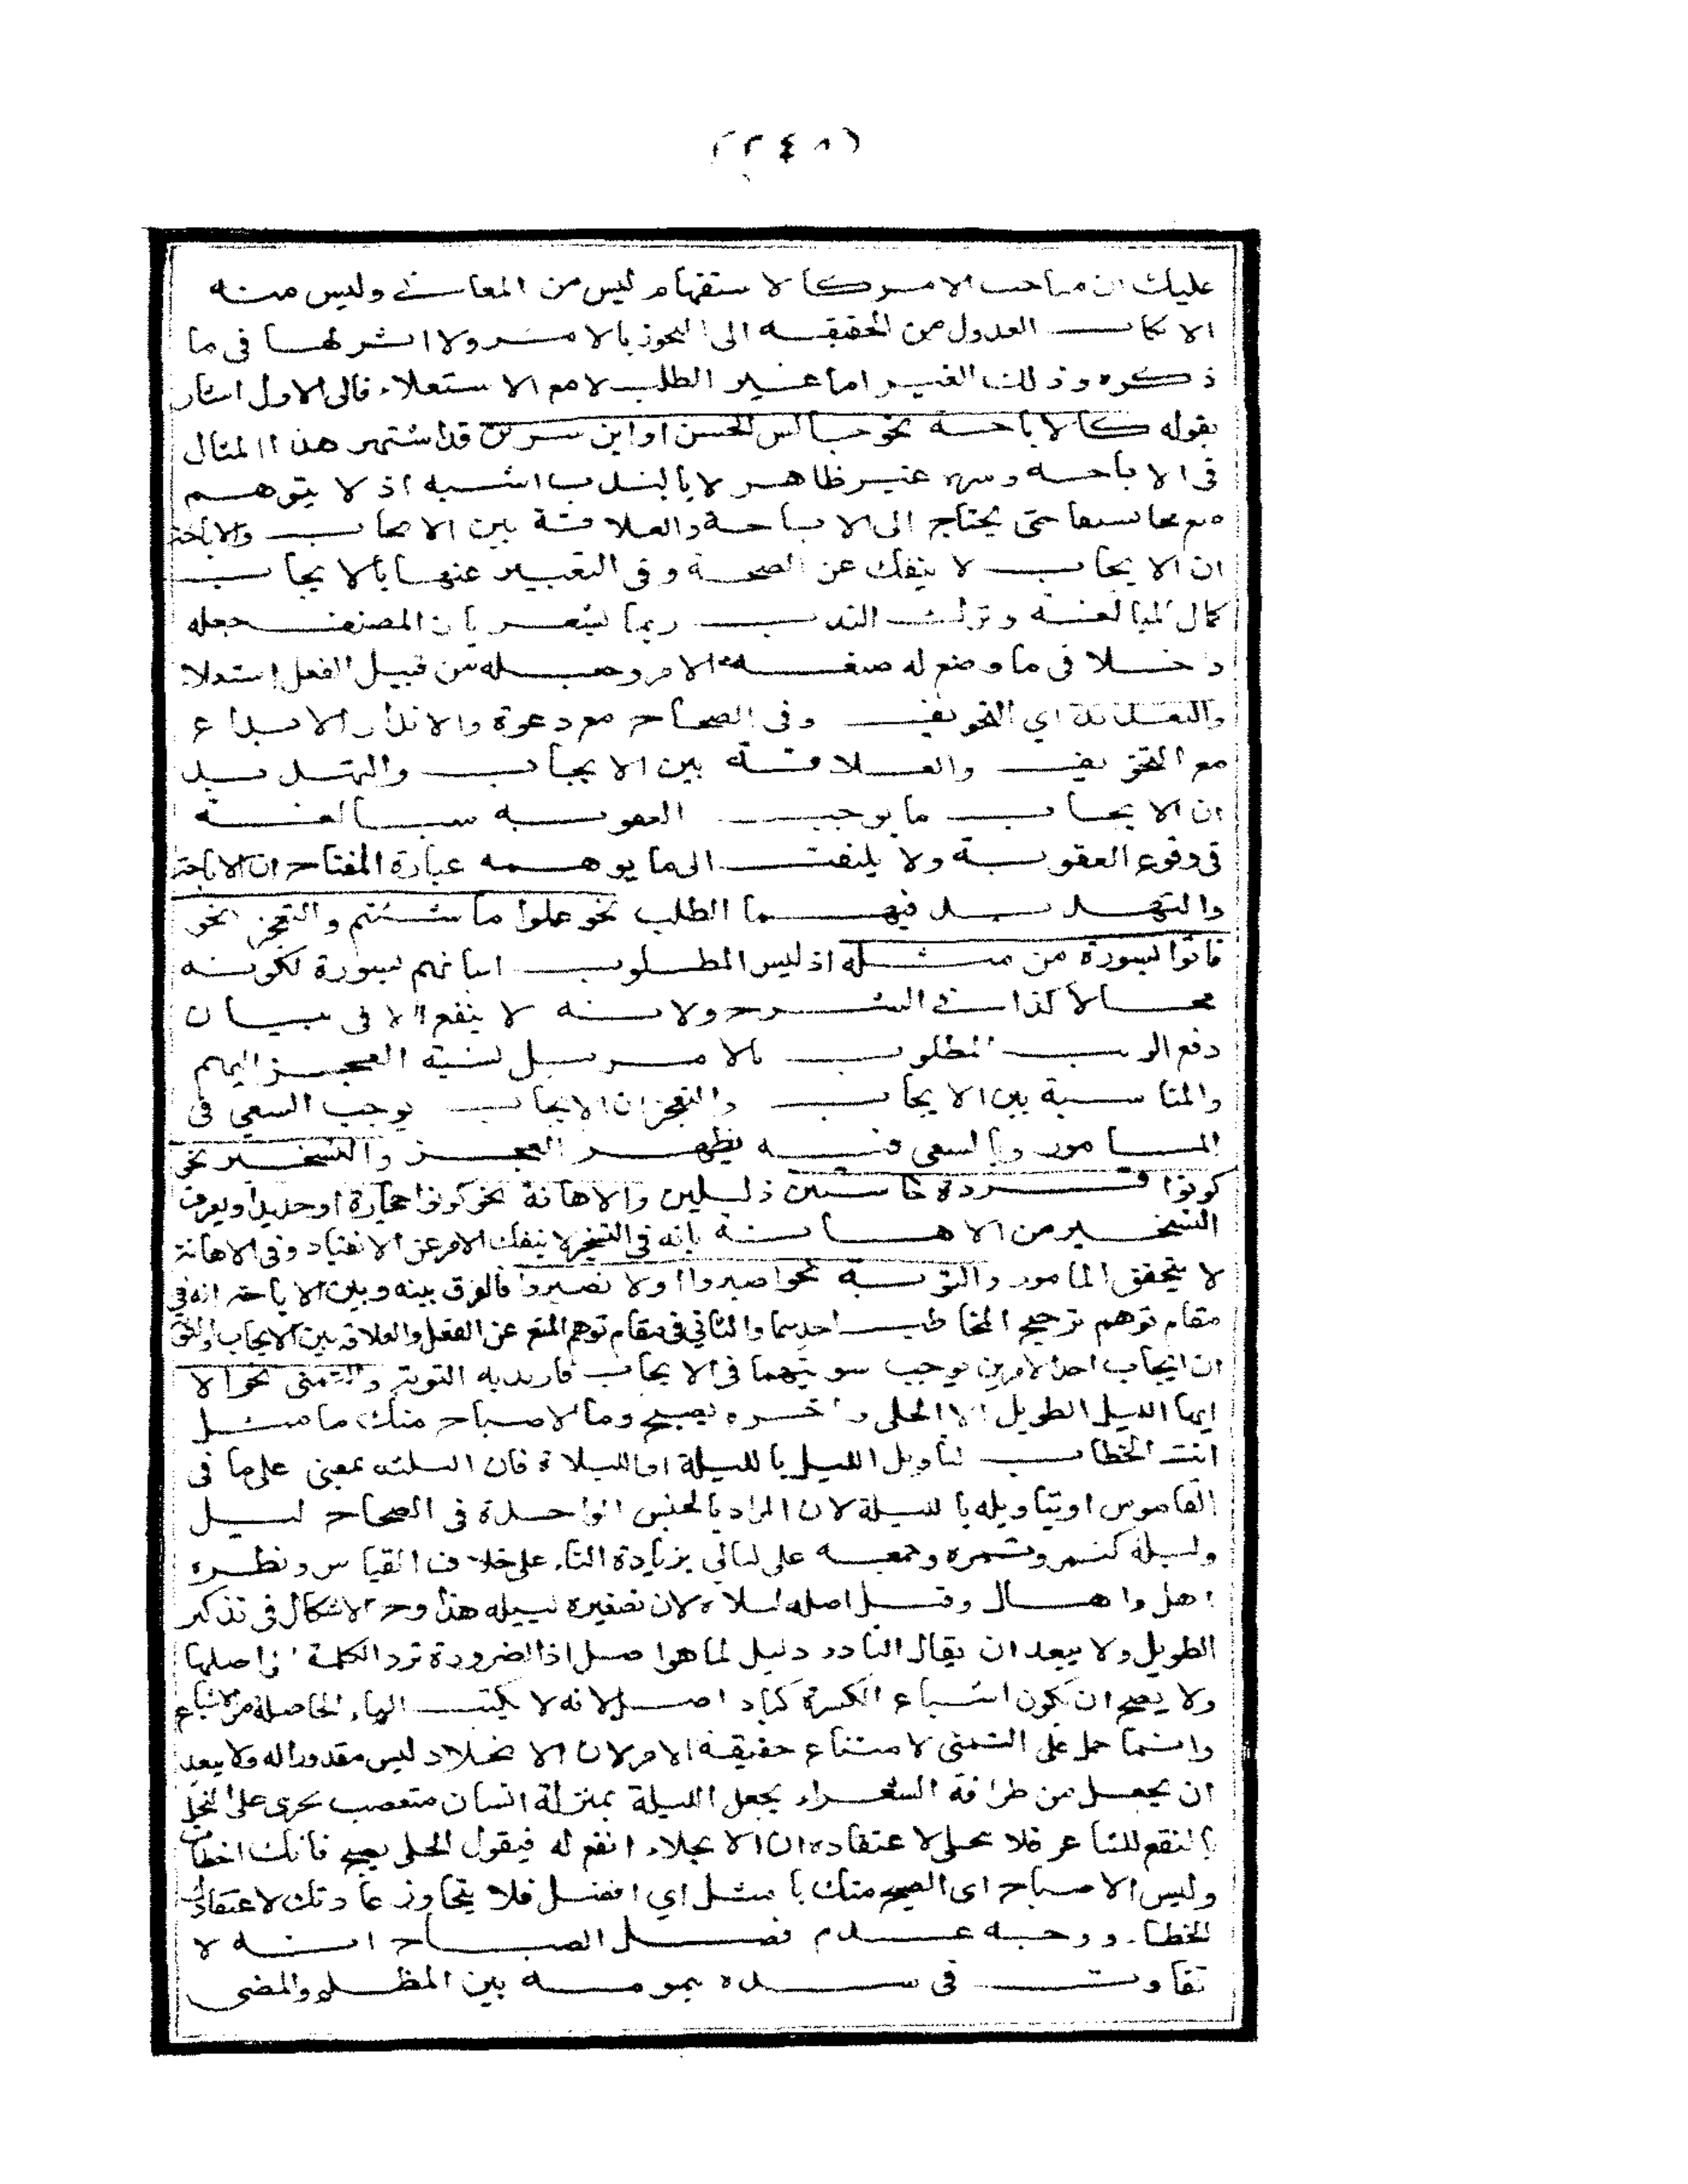 (٢٤٨)
عليك ان مباحث الامر كالاستفهام ليس من المعانى وليس منه
الا نكات العدول من الحقيقه الى التجوز بالامر ولا اثر لها فى ما
ذكره وذلك الغير اما غير الطلب لا مع الاستعلاء فالى الاول اشار
بقوله كالاباحة نحو جالس الحسن او ابن سيرين قد اشتهر هذا المثال
فى الاباحه وهو غير ظاهر لا بالندب اشبه اذ لا يتوهم
منع مجالستهما حتى يحتاج الى الاباحة والعلاقة بين الايجاب والاباحة
ان الايجاب لا ينفك عن الصحة وفى التعبير عنها بالايجاب
كمال المبالغة وترك الندب ربما يشعر بان المصنف جعله
داخلا فى ما وضع له صيغة الامر وجعله من قبيل الفعل استعلاء
والتهديد اي التخويف وفى الصحاح مع دعوة والانذار الابلاغ
مع التخويف والعلاقة بين الايجاب والتهديد
ان الايجاب ما يوجب العقوبه مبالغة
فى وقوع العقوبة ولا يلتفت الى ما يوهمه عبارة المفتاح ان الاباحة
والتهديد فيهما الطلب نحو اعملوا ما شئتم والتعجيز نحو
فاتوا بسورة من مثله اذ ليس المطلوب اتيانهم بسورة لكونه
محالا كذا فى الشرح ولانه لا ينفع الا فى بيان
دفع الريب المطلوب بالامر بل نسبة العجز اليهم
والمناسبة بين الايجاب والتعجيز ان الايجاب يوجب السعي فى
المامور وبالسعى فيه يظهر العجز والتسخير نحو
كونوا قردة خاسئين ذليلين والاهانة نحو كونوا حجارة او حديدا ويعرف
التسخير من الاهانة بانه فى التسخير لا ينفك الامر عن الانقياد وفى الاهانة
لا يتحقق المامور والتسوية نحو اصبروا او لا تصبروا فالفرق بينه وبين الاباحة انه فى
مقام توهم ترجيح المخاطب احدهما والثاني فى مقام توهم المنع عن الفعل والعلاقة بين الايجاب والتسوية
ان ايجاب احد الامرين يوجب سويتهما فى الايجاب فاريد به التسوية والتمنى نحو الا
ايها الليل الطويل الا انجلى واخره بصبح وما الاصباح منك بامثل
انث الخطاب لتاويل الليل بالليلة او الليلاة فان الليلة بمعنى على ما فى
القاموس او بتاويله بالليلة لان المراد بالجنس الواحدة فى الصحاح ليل
وليلة كتمر وتمره وجمعه على ليالى بزيادة الياء على خلاف القياس ونظيره
اهل واهال وقيل اصله ليلاه لان تصغيره لييله هذا وح الاشكال فى تذكير
الطويل ولا يبعد ان يقال النادر دليل لما هو اصل اذ الضرورة ترد الكلمة الى اصلها
ولا يصح ان يكون اشباع الكسرة كباء اصل لانه لا يكتب الياء الحاصلة من الاشباع
وانما حمل على التمنى لامتناع حقيقة الامر لان الانجلاء ليس مقدورا له ولا يبعد
ان يجعل من ظرافة الشعراء بجعل الليلة بمنزلة انسان متعصب يجرى على النحل
بالنفع للشاعر فلا ينجلى لاعتقاده ان الانجلاء انفع له فيقول انجلى بصبح فانك اخطات
وليس الاصباح اى الصبح منك بامثل اي افضل فلا يتجاوز عادتك لاعتقادك
الخطا. ووجه عدم فضل الصباح انه لا
تفاوت فى شده همومه بين المظلم والمضى